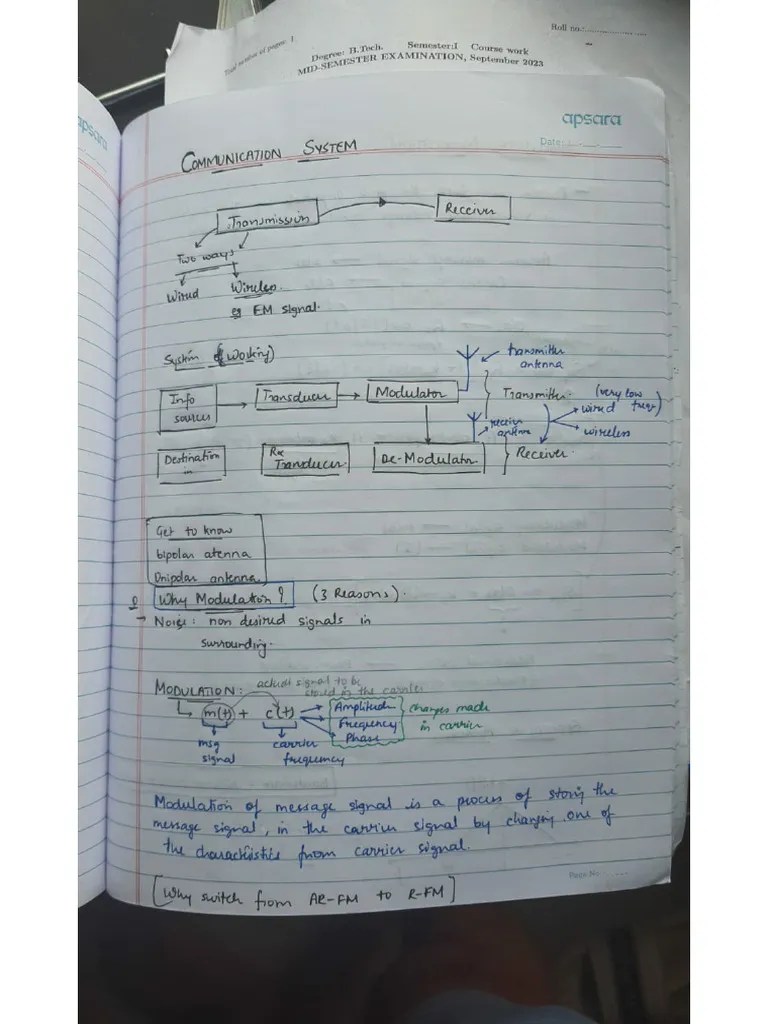 Roll no.:
Total number of pages: 1
Degree: B.Tech. Semester:I Course work
MID-SEMESTER EXAMINATION, September 2023
apsara
apsara
Date:
COMMUNICATION SYSTEM
Transmission
Receiver
Two ways
Wired
Wireless
eg EM signal.
System (Working)
transmitter
antenna
Info
sources
Transducer
Modulator
Transmitter.
(very low
freq)
wired
wireless
receiver
antenna
Destination
...
Rx
Transducer
De-Modulator
Receiver.
Get to know
bipolar atenna
Unipolar antenna
Q Why Modulation? (3 Reasons).
→ Noise: non desired signals in
surrounding.
actual signal to be
stored in the carrier
MODULATION:
m(t) + c(t)
Amplitude
Frequency
Phase
changes made
in carrier
msg
signal
carrier
frequency
Modulation of message signal is a process of storing the
message signal, in the carrier signal by changing one of
the charactistics from carrier signal.
Page No.
[Why switch from AR-FM to R-FM]